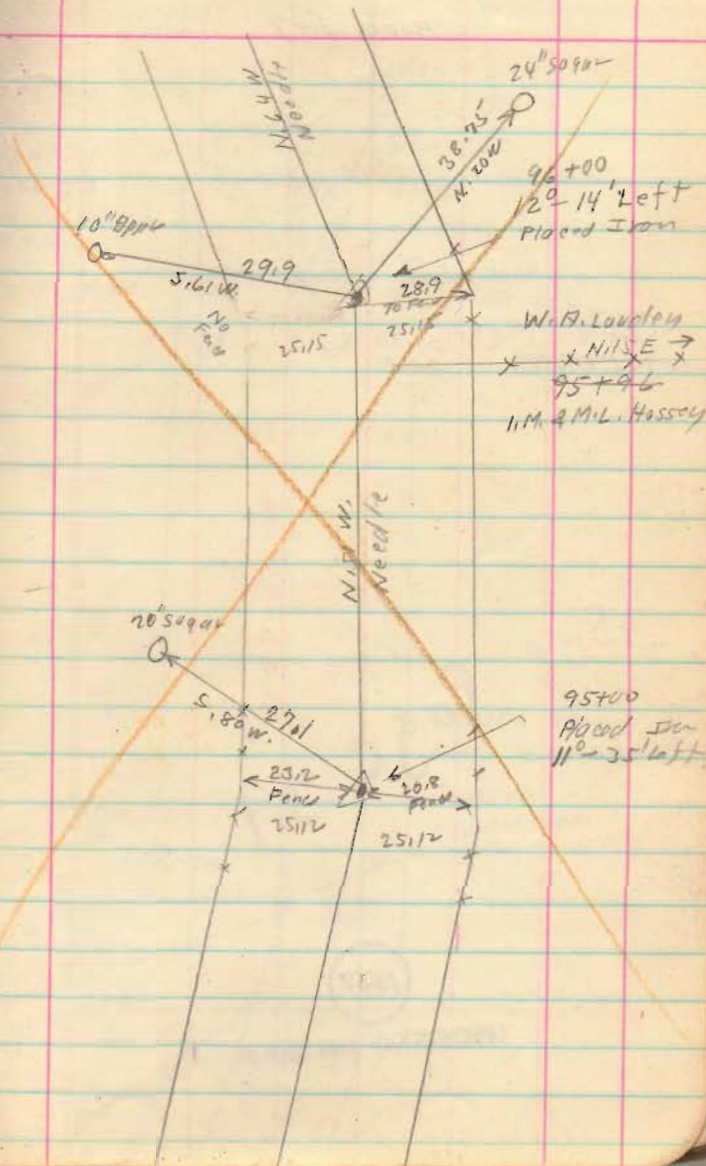 24" Sugar
N.64W
Needle
38.75'
N. 20W
96+00
12°-14' Left
Placed Iron
10"
29.9
S.61W.
28.9
To Fence
No
Fence
25.15
25.15
W.A. Louden
N.15E →
95+96
I.M. & M.L. Hossey
N.51 W.
Needle
20" Sugar
S.80W.
27.1
95+00
Placed Iron
11°-35' Left
23.2
Fence
20.8
Fence
25.12
25.12